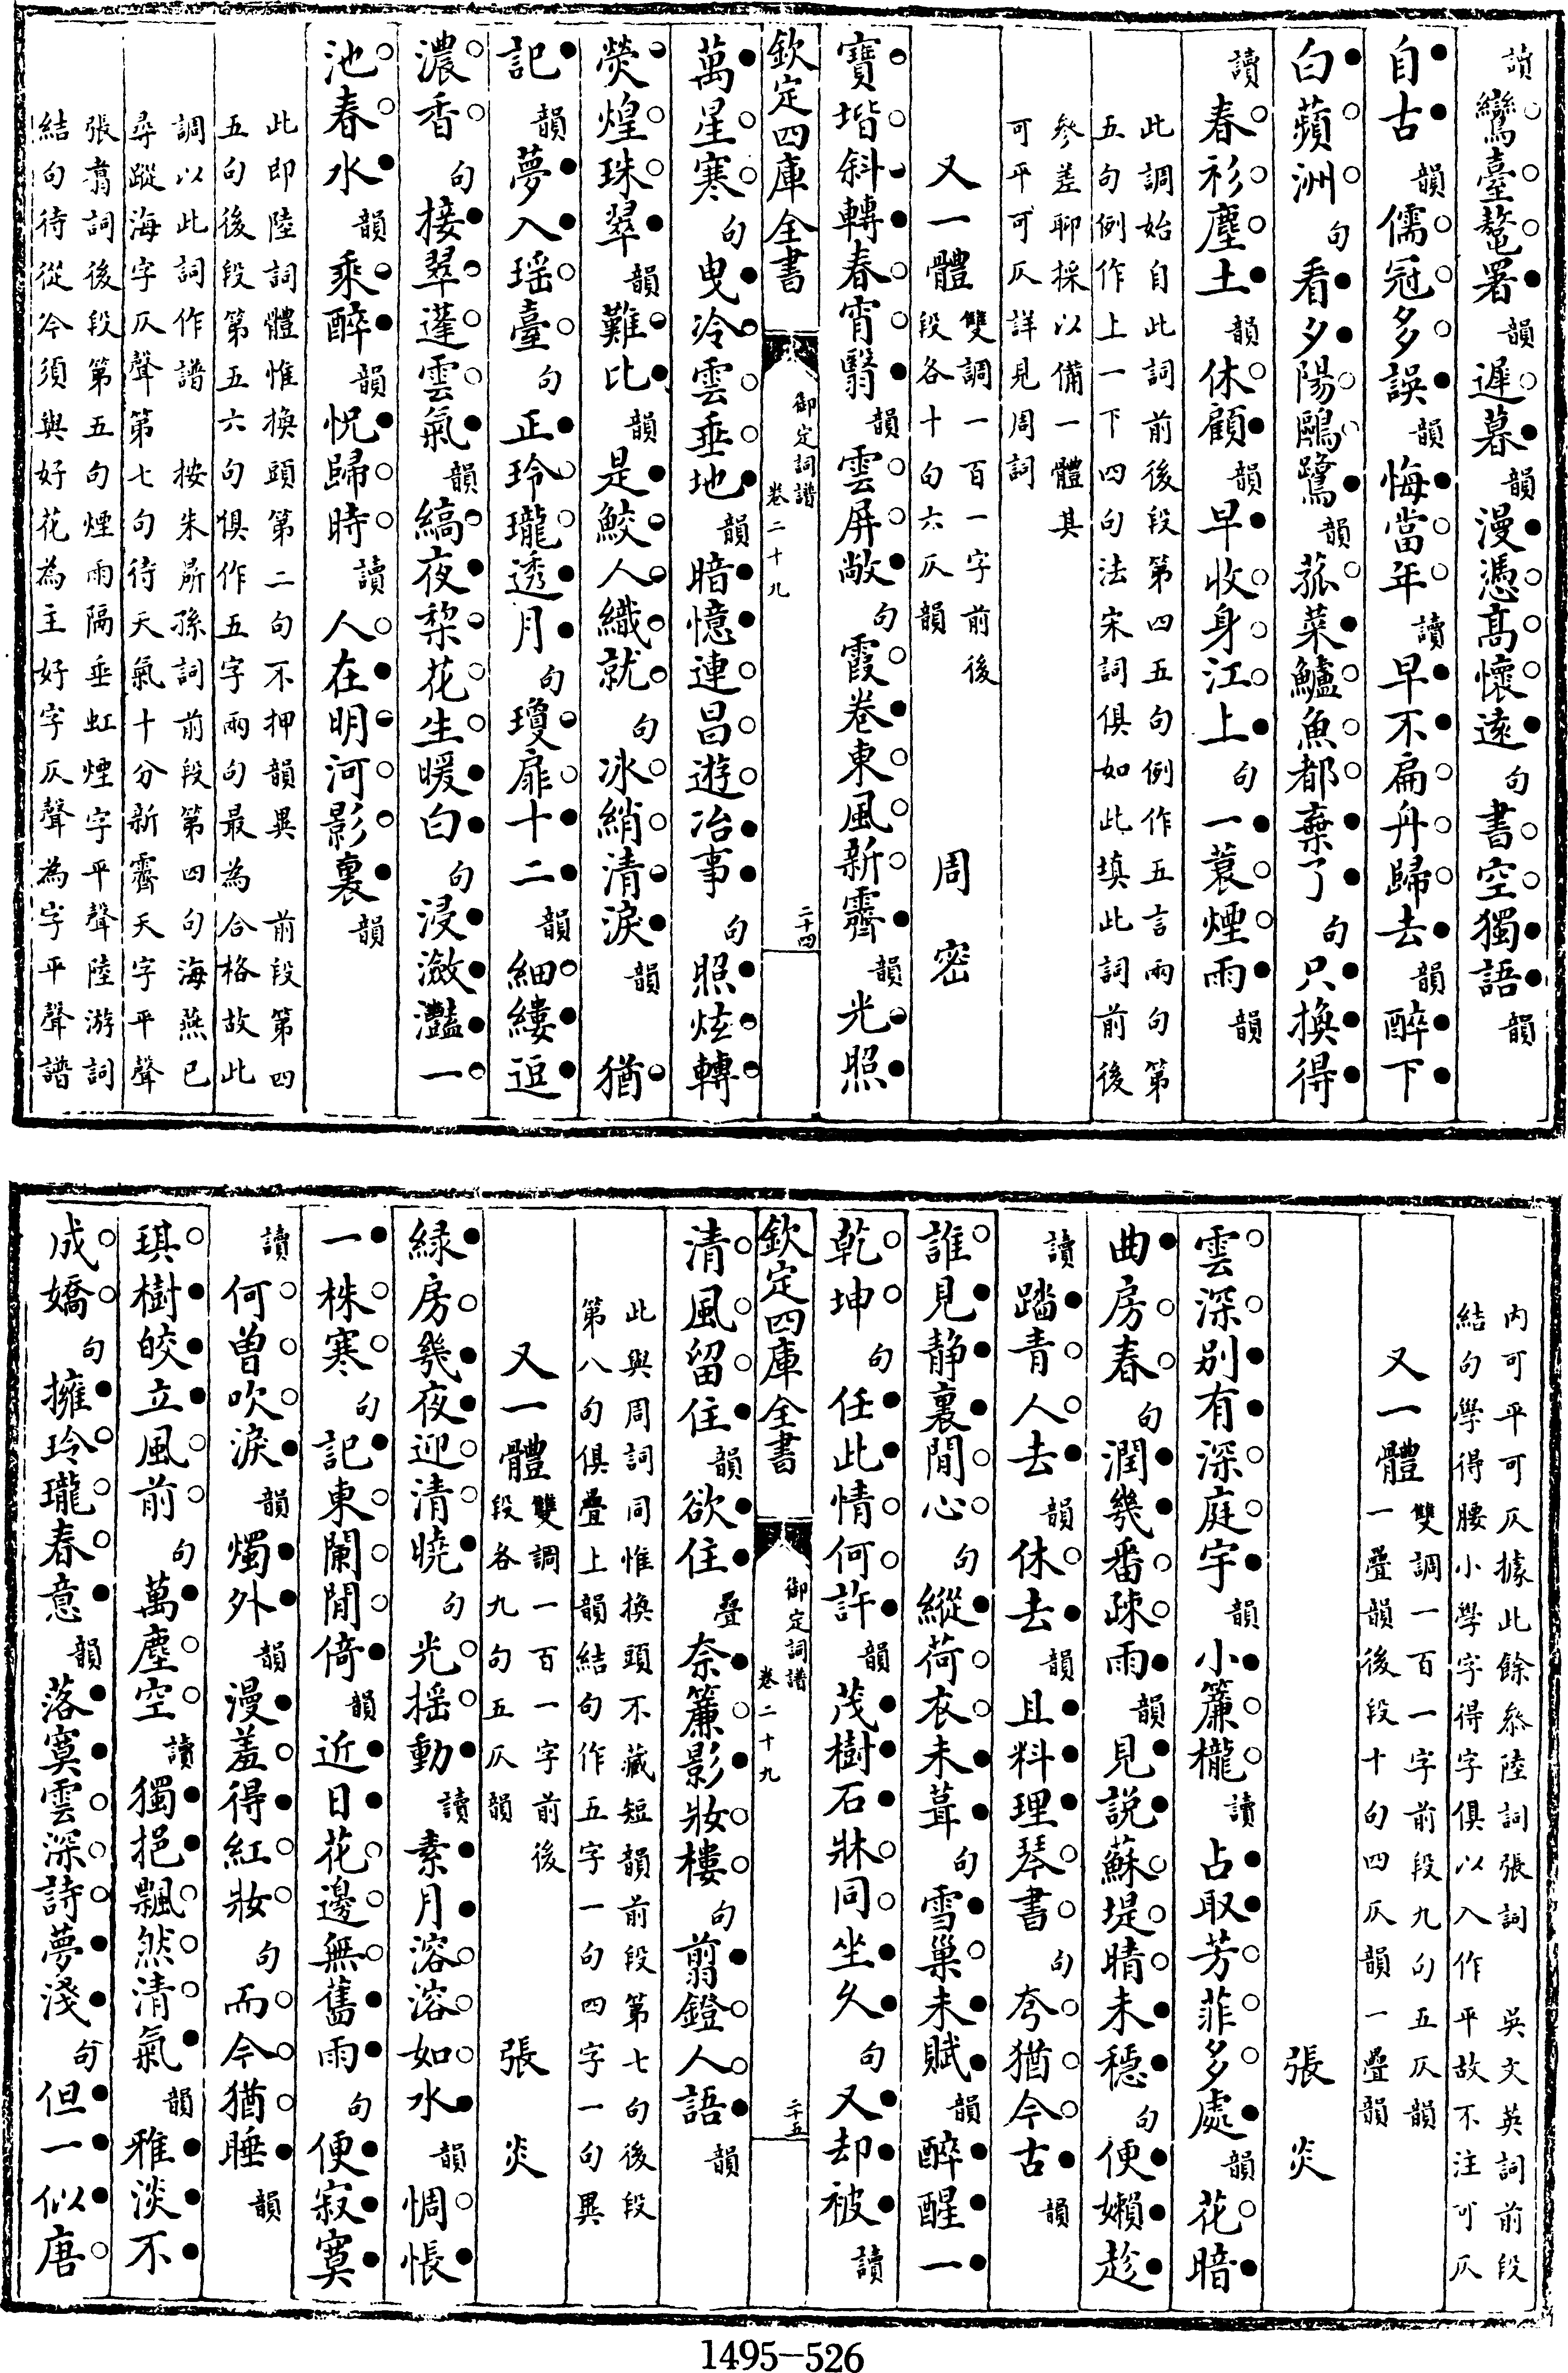 讀鸞臺鼇署韻遲暮韻漫憑高懷遠句書空獨語韻
自古韻儒冠多誤韻悔當年讀早不扁舟歸去韻醉下
白蘋洲句看夕陽鷗鷺韻菰菜鱸魚都棄了句只換得
讀春衫塵土韻休顧韻早收身江上句一蓑煙雨韻
此調始自此詞前後段第四五句例作五言兩句第
五句例作上一下四句法宋詞俱如此填此詞前後
參差聊採以備一體其
可平可仄詳見周詞
又一體
雙調一百一字前後
段各十句六仄韻
周密
寶堦斜轉春宵翳韻雲屏敞句霞卷東風新霽韻光照
欽定四庫全書
御定詞譜
卷二十九
二十四
萬星寒句曳冷雲垂地韻暗憶連昌遊冶事句照炫轉
熒煌珠翠韻難比韻是鮫人織就句冰綃清淚韻 猶
記韻夢入瑶臺句正玲瓏透月句瓊扉十二韻細縷逗
濃香句接翠蓬雲氣韻縞夜棃花生暖白句浸瀲灩一
池春水韻乘醉韻怳歸時讀人在明河影裏韻
此即陸詞體惟換頭第二句不押韻異 前段第四
五句後段第五六句俱作五字兩句最為合格故此
調以此詞作譜 按朱㪽孫詞前段第四句海燕已
尋蹤海字仄聲第七句待天氣十分新霽天字平聲
張翥詞後段第五句煙雨隔垂虹煙字平聲陸游詞
結句待從今須與好花為主好字仄聲為字平聲譜
內可平可仄據此餘叅陸詞張詞 吳文英詞前段
結句學得腰小學字得字俱以入作平故不注可仄
又一體
雙調一百一字前段九句五仄韻
一疊韻後段十句四仄韻一疊韻
張炎
雲深别有深庭宇韻小簾櫳讀占取芳菲多處韻花暗
曲房春句潤幾番疎雨韻見説蘇堤晴未穩句便嬾趁
讀踏青人去韻休去韻且料理琴書句夸猶今古韻
誰見静裏閒心句縱荷衣未葺句雪巢未賦韻醉醒一
乾坤句任此情何許韻茂樹石牀同坐久句又却被讀
欽定四庫全書
御定詞譜
卷二十九
二十五
清風留住韻欲住疊奈簾影妝樓句翦鐙人語韻
此與周詞同惟換頭不藏短韻前段第七句後段
第八句俱疊上韻結句作五字一句四字一句異
又一體
雙調一百一字前後
段各九句五仄韻
張炎
緑房幾夜迎清曉句光揺動讀素月溶溶如水韻惆悵
一株寒句記東闌閒倚韻近日花邊無舊雨句便寂寞
讀何曾吹淚韻燭外韻漫羞得紅妝句而今猶睡韻
琪樹皎立風前句萬塵空讀獨挹飄然清氣韻雅淡不
成嬌句擁玲瓏春意韻落寞雲深詩夢淺句但一似唐
1495-526